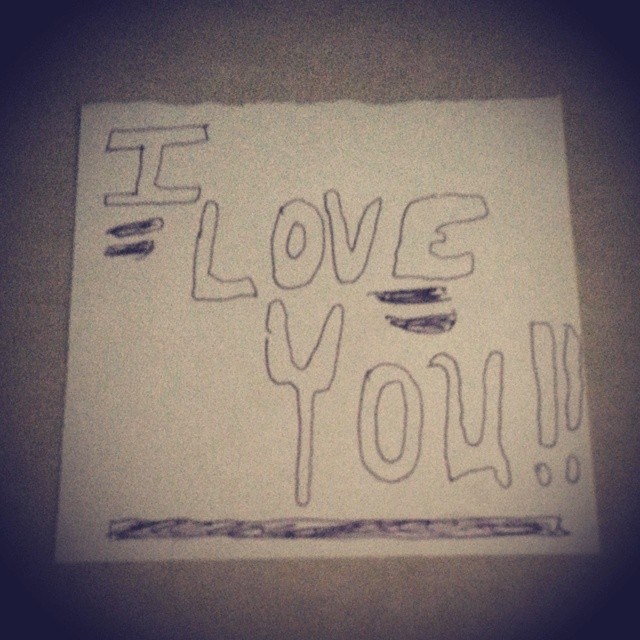 I
LOVE
YOU!!